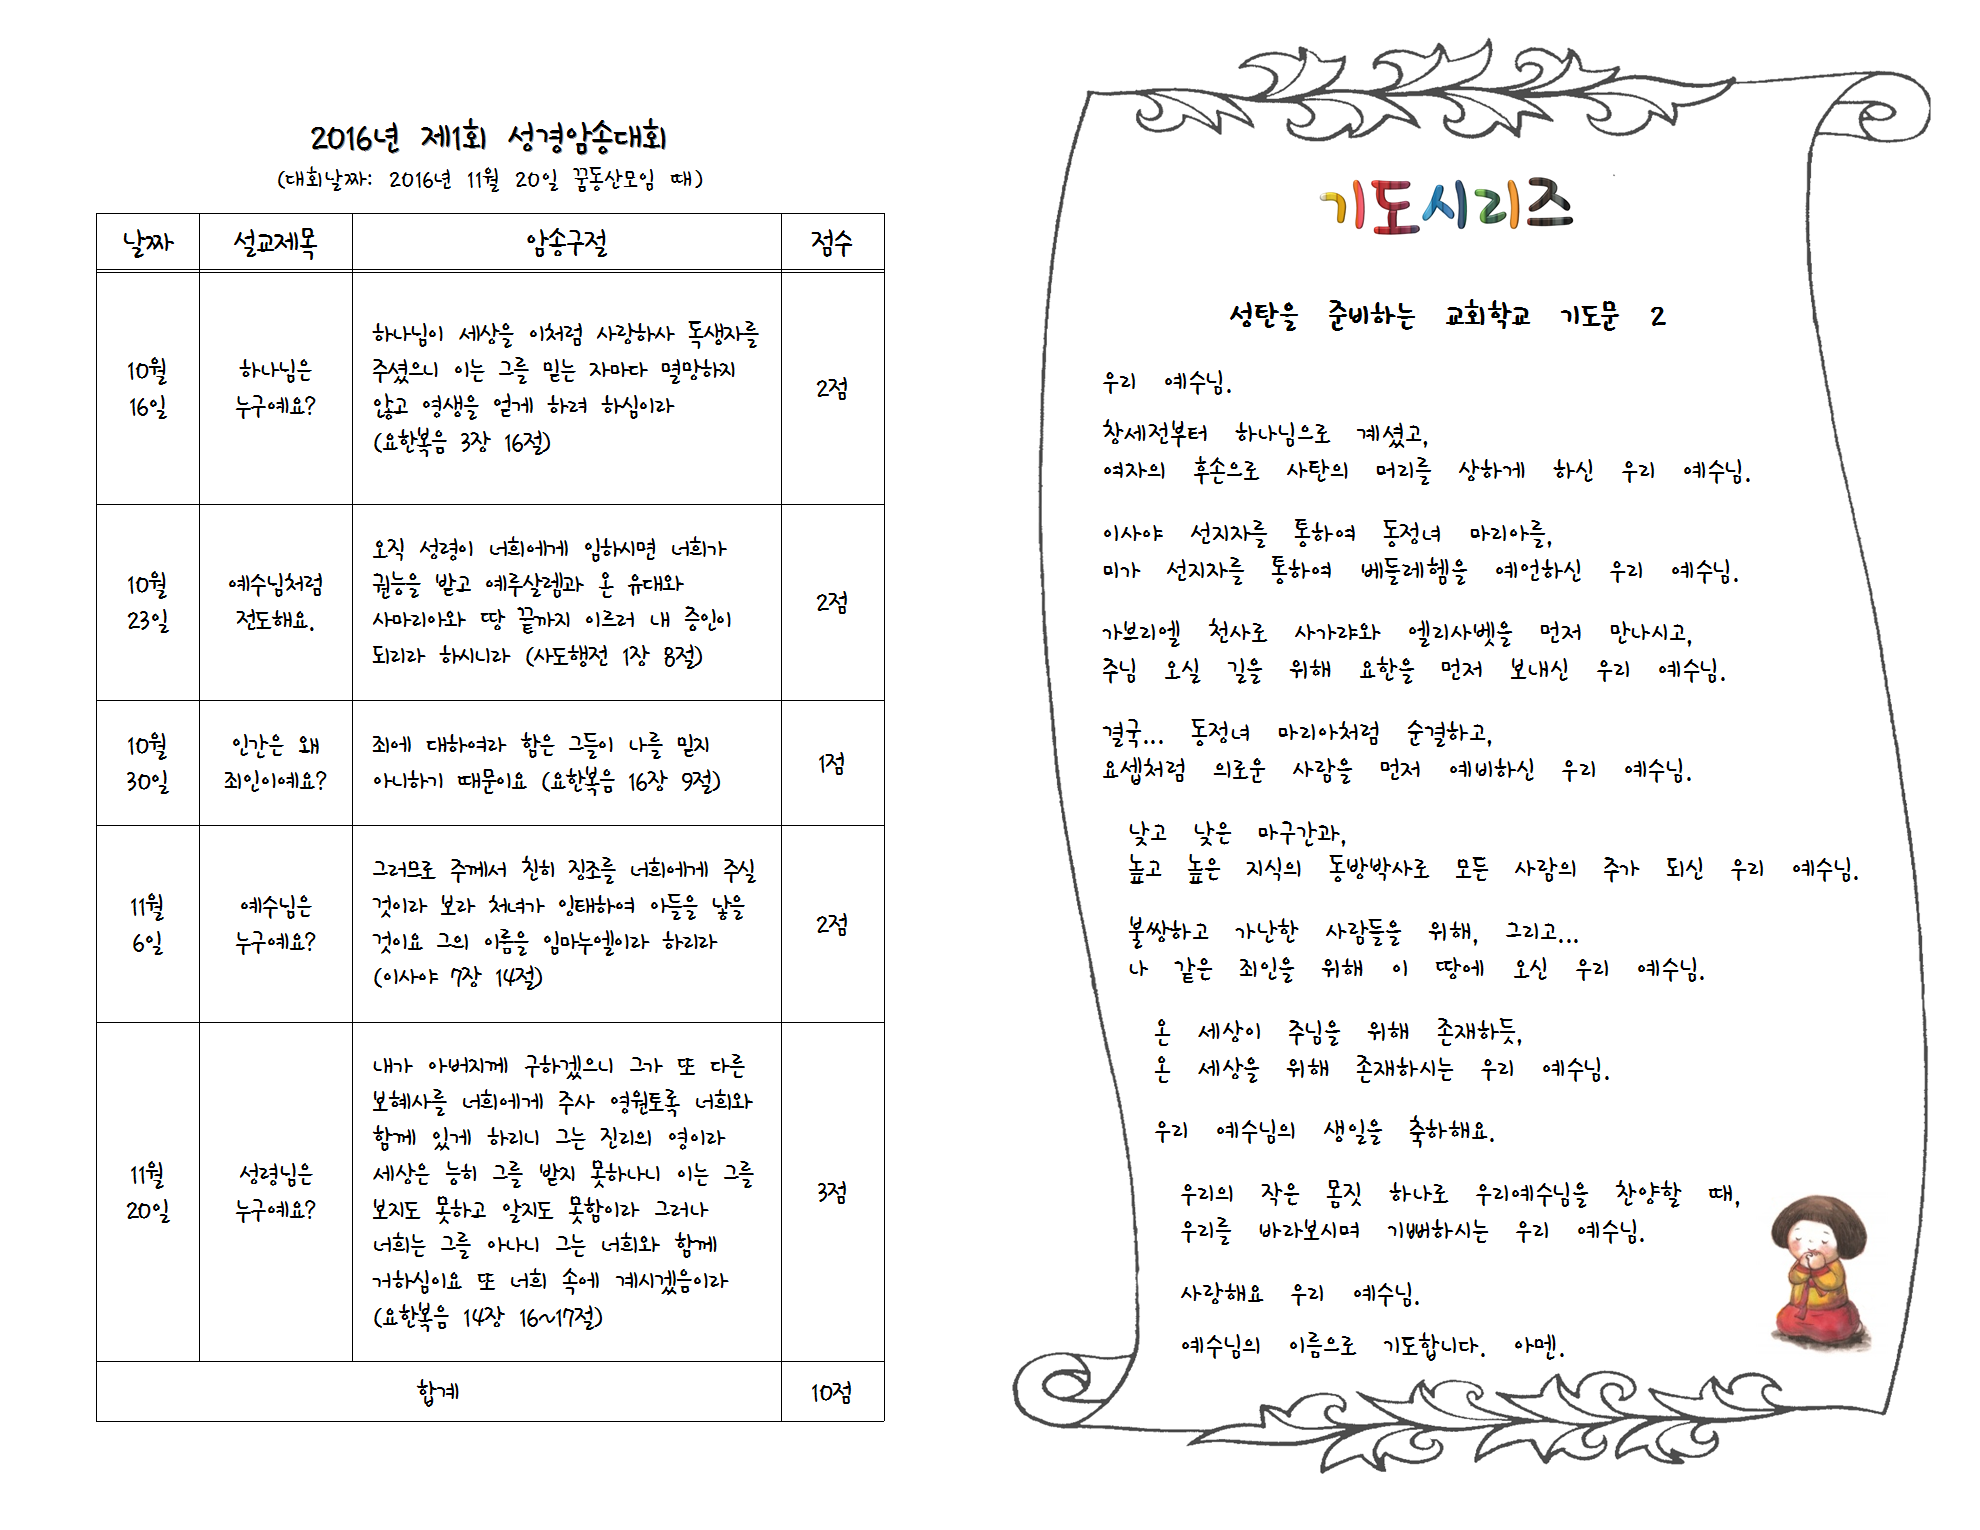 2016년 제1회 성경암송대회
(대회날짜: 2016년 11월 20일 꿈동산모임 때)
날짜 설교제목 암송구절 점수
10월
16일
하나님은
누구예요?
하나님이 세상을 이처럼 사랑하사 독생자를
주셨으니 이는 그를 믿는 자마다 멸망하지
않고 영생을 얻게 하려 하심이라
(요한복음 3장 16절)
2점
10월
23일
예수님처럼
전도해요.
오직 성령이 너희에게 임하시면 너희가
권능을 받고 예루살렘과 온 유대와
사마리아와 땅 끝까지 이르러 내 증인이
되리라 하시니라 (사도행전 1장 8절)
2점
10월
30일
인간은 왜
죄인이예요?
죄에 대하여라 함은 그들이 나를 믿지
아니하기 때문이요 (요한복음 16장 9절)
1점
11월
6일
예수님은
누구예요?
그러므로 주께서 친히 징조를 너희에게 주실
것이라 보라 처녀가 잉태하여 아들을 낳을
것이요 그의 이름을 임마누엘이라 하리라
(이사야 7장 14절)
2점
11월
20일
성령님은
누구예요?
내가 아버지께 구하겠으니 그가 또 다른
보혜사를 너희에게 주사 영원토록 너희와
함께 있게 하리니 그는 진리의 영이라
세상은 능히 그를 받지 못하나니 이는 그를
보지도 못하고 알지도 못함이라 그러나
너희는 그를 아나니 그는 너희와 함께
거하심이요 또 너희 속에 계시겠음이라
(요한복음 14장 16~17절)
3점
합계 10점
기도시리즈
성탄을 준비하는 교회학교 기도문 2
우리 예수님.
창세전부터 하나님으로 계셨고,
여자의 후손으로 사탄의 머리를 상하게 하신 우리 예수님.
이사야 선지자를 통하여 동정녀 마리아를,
미가 선지자를 통하여 베들레헴을 예언하신 우리 예수님.
가브리엘 천사로 사가랴와 엘리사벳을 먼저 만나시고,
주님 오실 길을 위해 요한을 먼저 보내신 우리 예수님.
결국... 동정녀 마리아처럼 순결하고,
요셉처럼 의로운 사람을 먼저 예비하신 우리 예수님.
낮고 낮은 마구간과,
높고 높은 지식의 동방박사로 모든 사람의 주가 되신 우리 예수님.
불쌍하고 가난한 사람들을 위해, 그리고...
나 같은 죄인을 위해 이 땅에 오신 우리 예수님.
온 세상이 주님을 위해 존재하듯,
온 세상을 위해 존재하시는 우리 예수님.
우리 예수님의 생일을 축하해요.
우리의 작은 몸짓 하나로 우리예수님을 찬양할 때,
우리를 바라보시며 기뻐하시는 우리 예수님.
사랑해요 우리 예수님.
예수님의 이름으로 기도합니다. 아멘.